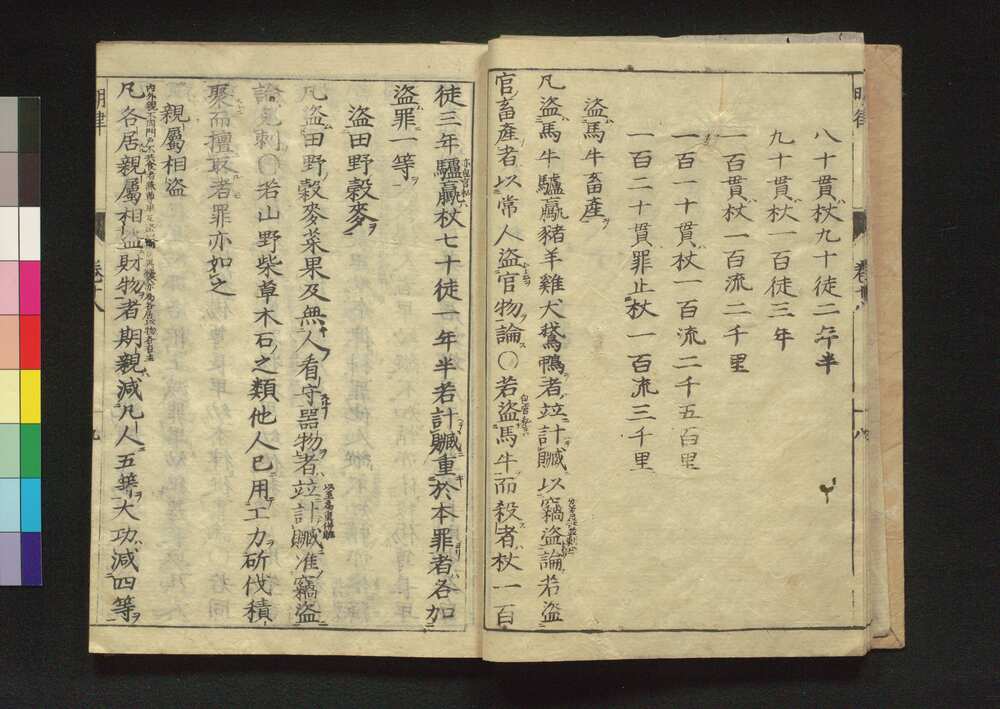 八十貫杖九十徒二年半
九十貫杖一百徒三年
一百貫杖一百流二千里
一百一十貫杖一百流二千五百里
一百二十貫罪止杖一百流三千里
盜馬牛畜產
凡盜馬牛驢騾豬羊雞犬鵞鴨者竝計贓以竊盜論若盜
官畜產者以常人盜官物論〇若盜馬牛而殺者杖一百
徒三年驢騾杖七十徒一年半若計贓重於本罪者各加
盜罪一等
盜田野穀麥
凡盜田野穀麥菜果及無人看守器物者竝計贓准竊盜
論免刺〇若山野柴草木石之類他人已用工力斫伐積
聚而擅取者罪亦如之
親屬相盜
凡各居親屬相盜財物者期親減凡人五等大功減四等